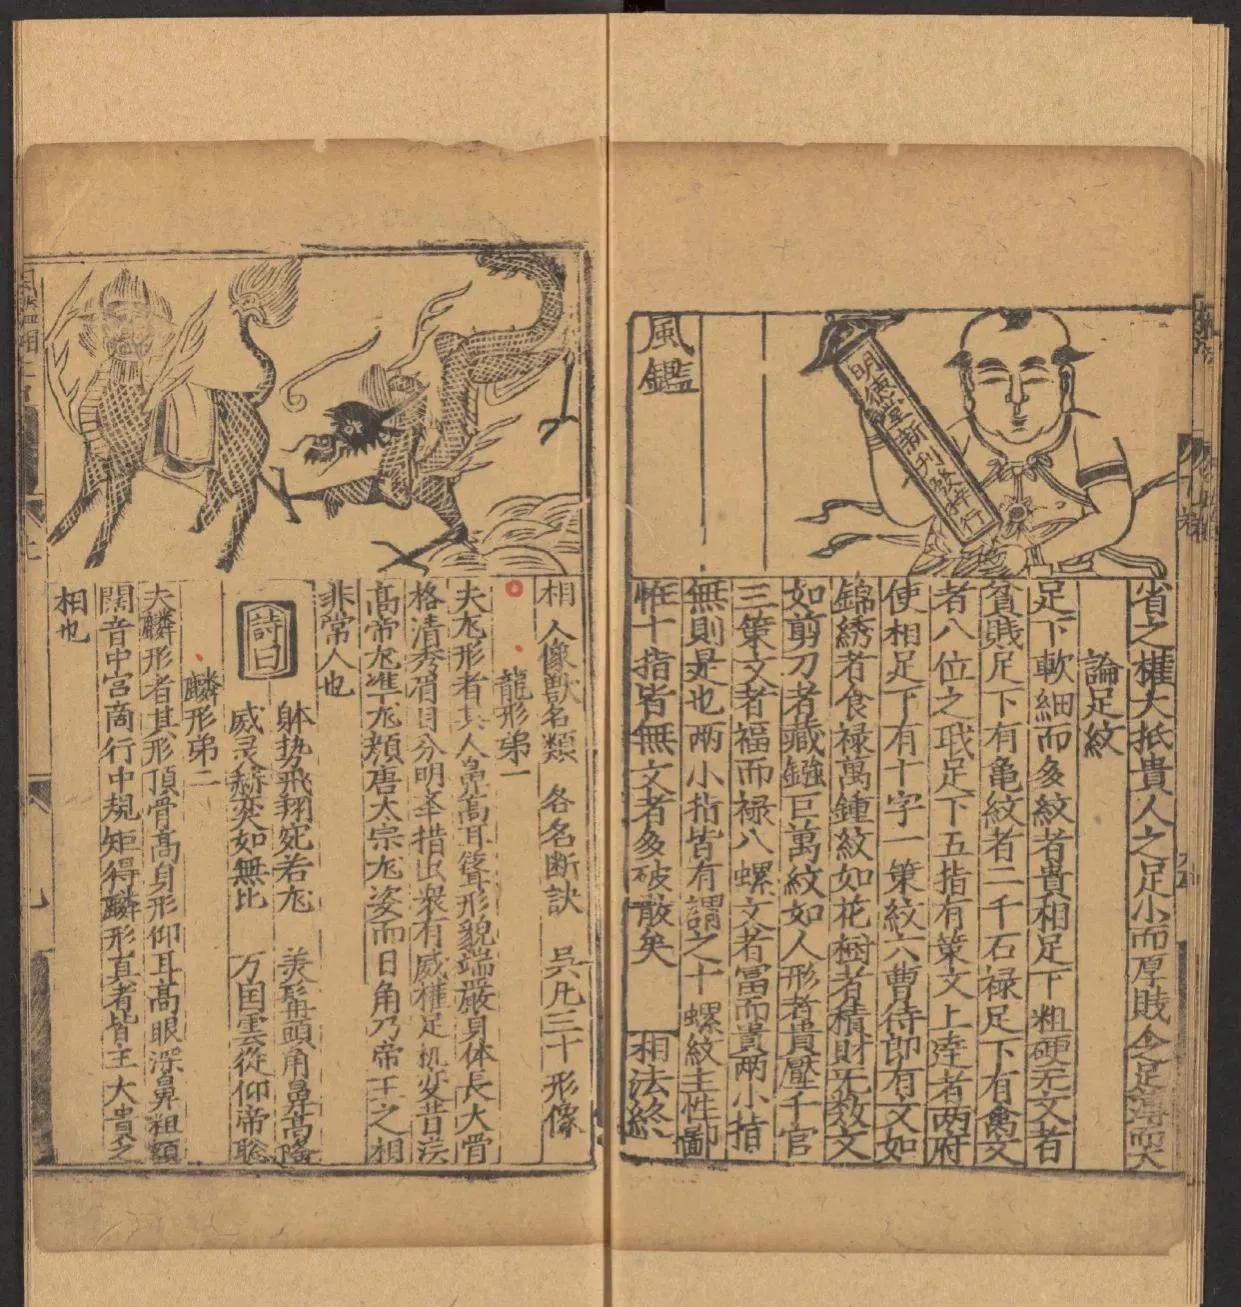 風鑑
明德堂新刊發行
省之權大抵貴人之足小而厚賤人之足薄而大
論足紋
足下軟細而多紋者貴相足下粗硬无文者
貧賤足下有亀紋者二千石禄足下有禽文
者八位之職足下五指有策文上達者两府
使相足下有十字一策紋六曹侍郎有文如
錦綉者食禄萬鍾紋如花樹者積財无数文
如剪刀者藏鏹巨萬紋如人形者貴壓千官
三策文者福而禄八螺文者冨而貴两小指
無則是也两小指皆有謂之十螺紋主性鄙嗇
惟十指皆無文者多破散矣
相法終
相人像獸名類 各名断訣 吳凣三十形像
龍形弟一
夫尨形者其人鼻高耳聳形貌端嚴身体長大骨
格清秀眉目分明举措出衆有威權足机变昔漢
高帝尨準尨顔唐太宗尨姿而日角乃帝王之相
非常人也
詩曰
躰势飛翔宛若尨 美髯頭角鼻高隆
威灵赫奕如無比 万国雲從仰帝聡
麟形弟二
夫麟形者其形頂骨高身形仰耳高眼深鼻粗額
闊音中宮商行中規矩得麟形真者皆主大貴之
相也